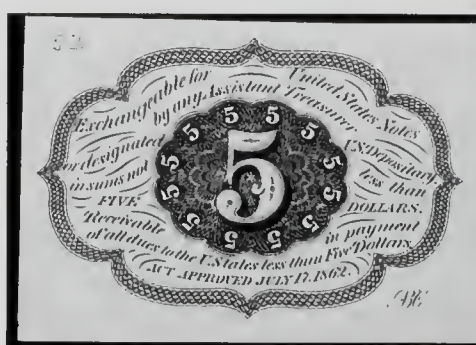 Exchangeable for United States Notes
by any Assistant Treasurer
or designated U.S. Depositary
in sums not less than
FIVE DOLLARS.
Receivable in payment
of all dues to the U. States less than Five Dollars
ACT APPROVED JULY 17, 1862.
5
5 5 5 5 5 5 5 5 5 5 5 5